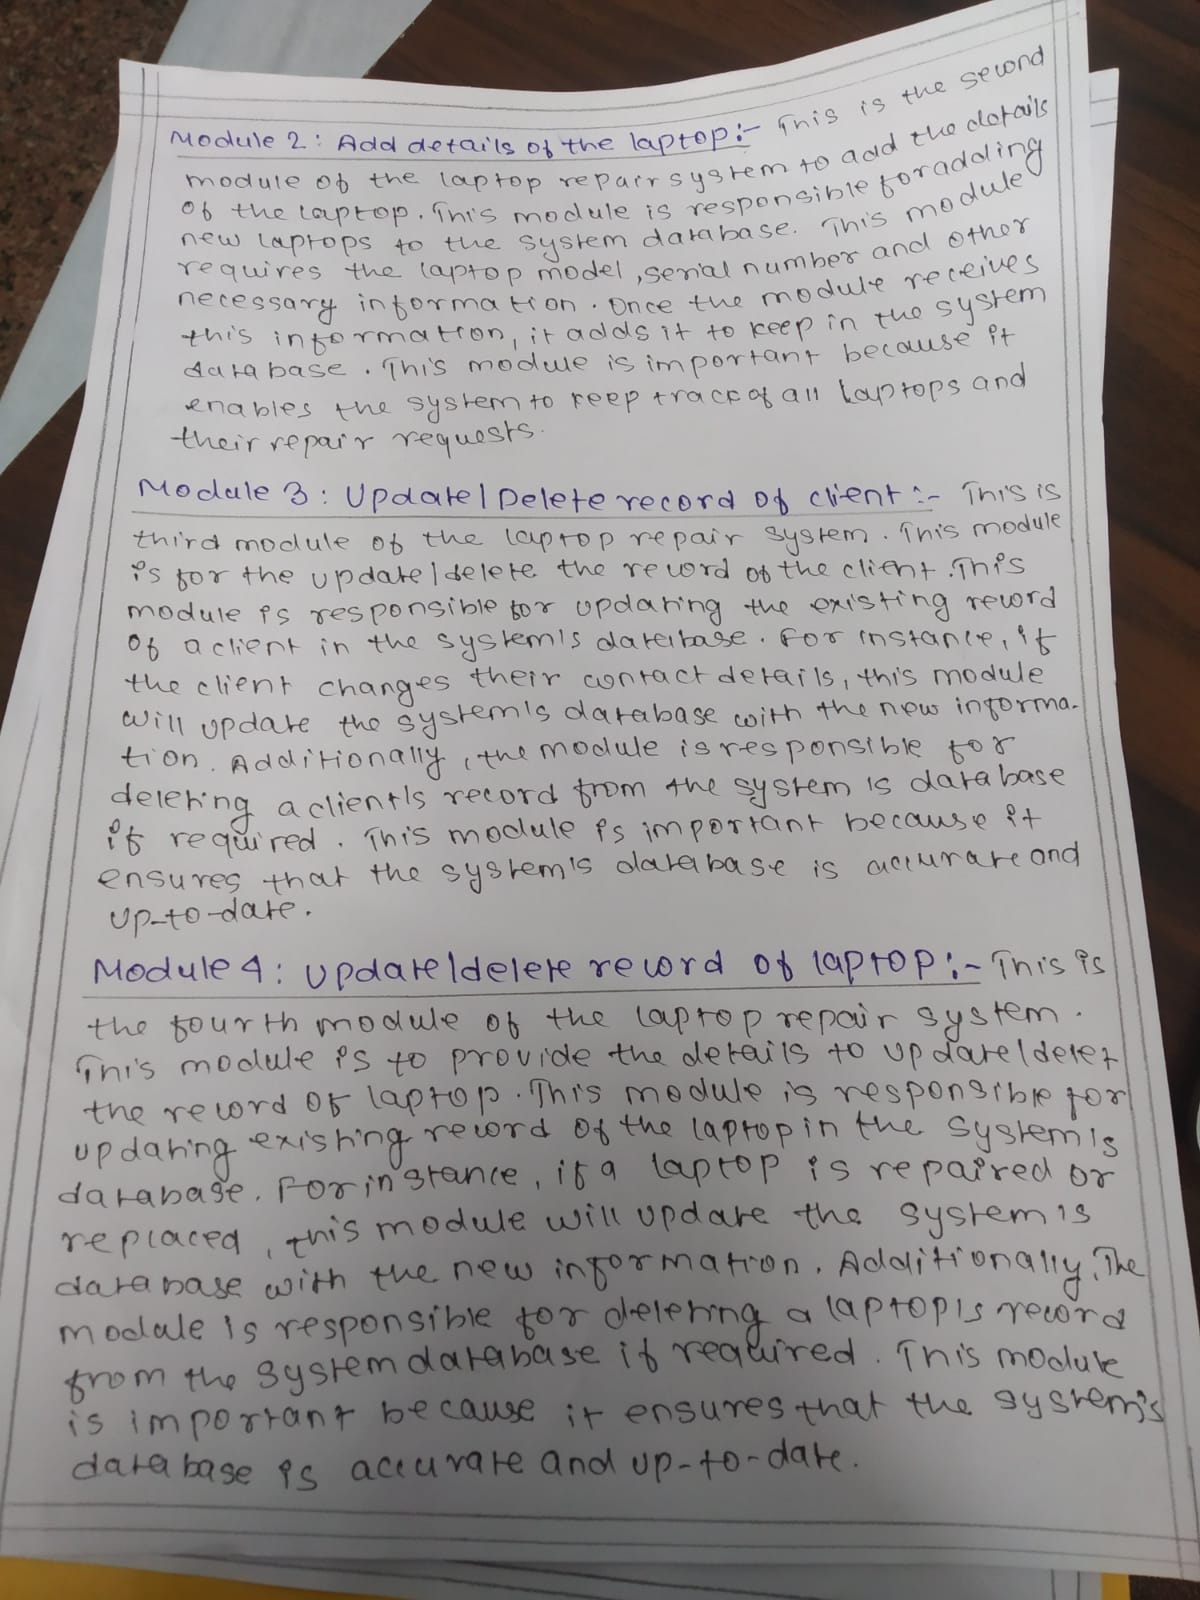 Module 2 : Add details of the laptop:- This is the second
module of the laptop repair system to add the details
of the laptop. This module is responsible for adding
new laptops to the system database. This module
requires the laptop model, serial number and other
necessary information. Once the module receives
this information, it adds it to keep in the system
database. This module is important because it
enables the system to keep track of all laptops and
their repair requests.
Module 3 : Update/Delete record of client :- This is
third module of the laptop repair system. This module
is for the update/delete the record of the client. This
module is responsible for updating the existing record
of a client in the system's database. For instance, if
the client changes their contact details, this module
will update the system's database with the new informa-
tion. Additionally, the module is responsible for
deleting a client's record from the system is database
if required. This module is important because it
ensures that the system's database is accurate and
up-to-date.
Module 4 : update/delete record of laptop:- This is
the fourth module of the laptop repair system.
This module is to provide the details to update/delet
the record of laptop. This module is responsible for
updating existing record of the laptop in the system's
database. For instance, if a laptop is repaired or
replaced, this module will update the system's
database with the new information. Additionally, The
module is responsible for deleting a laptop's record
from the system database if required. This module
is important because it ensures that the system's
database is accurate and up-to-date.